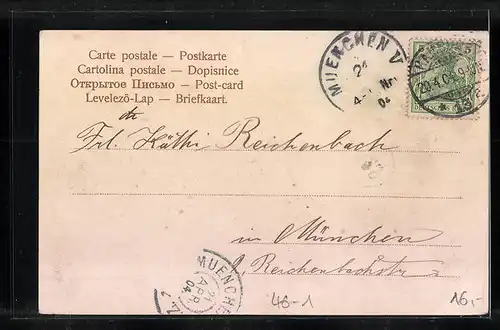 Carte postale — Postkarte
Cartolina postale — Dopisnice
Открытое Письмо — Post-card
Levelező-Lap — Briefkaart.
MUENCHEN V
04
20.4.04
Frl. Käthi Reichenbach
in München
Reichenbachstr
MUENCHEN
21
APR
04
46-1
16,-